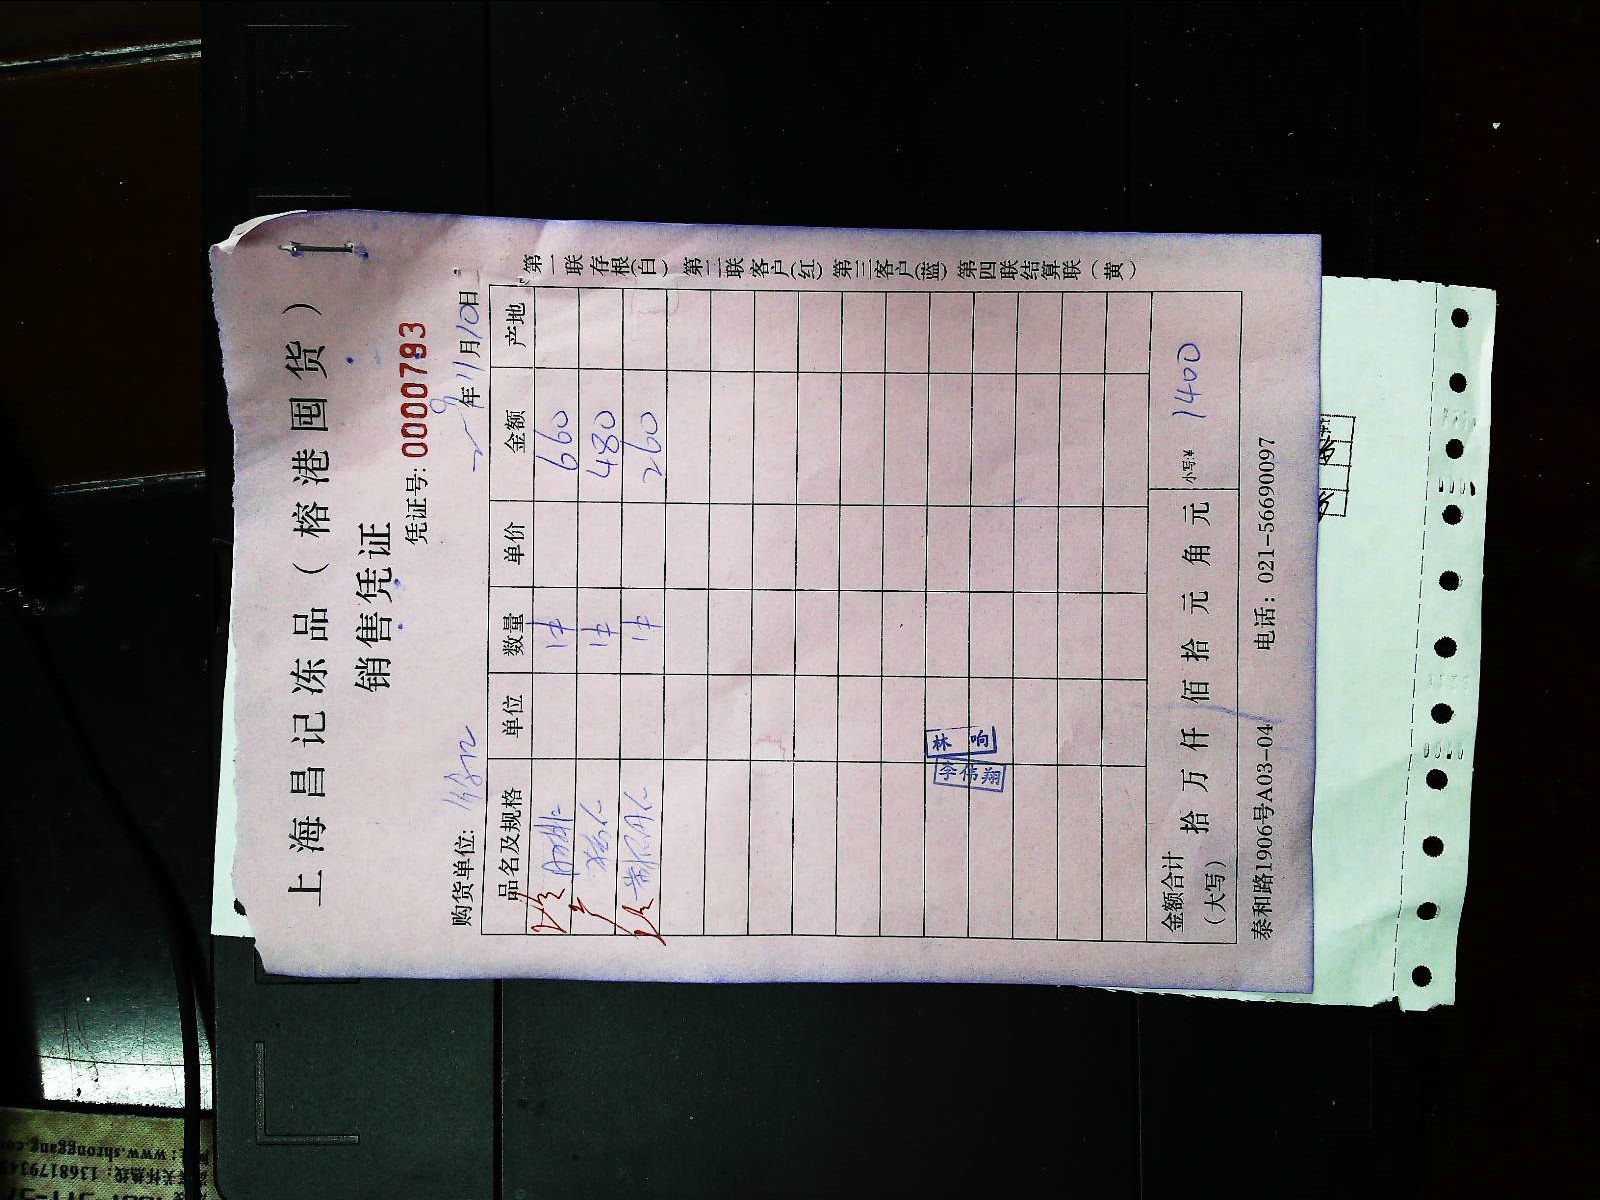 上海昌记冻品（榕港囤货）
销售凭证
凭证号: 0000793
年 11月10日
购货单位:
品名及规格 单位 数量 单价 金额 产地
1件 660
1件 480
1件 260
林响
李伟翔
金额合计（大写） 拾 万 仟 佰 拾 元 角 元 小写:¥ 1400
泰和路1906号A03-04 电话: 021-56690097
第一联存根(白) 第二联客户(红) 第三客户(蓝) 第四联结算联(黄)
www.shronggang.co